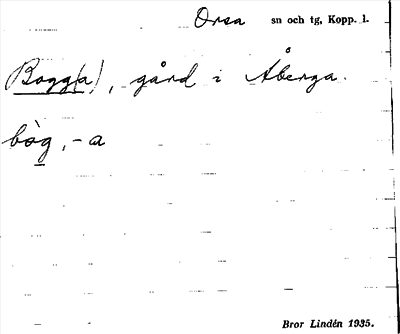 Orsa sn och tg, Kopp. l.
Bogg(a), gård i Åberga.
bòg, -a
Bror Lindén 1935.